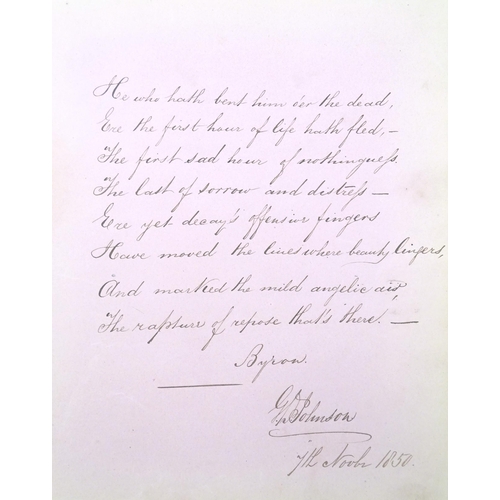 He who hath bent him o'er the dead,
Ere the first hour of life hath fled, –
The first sad hour of nothingness
The last of sorrow and distress –
Ere yet decay's offensive fingers
Have moved the lines where beauty lingers,
And marked the mild angelic air,
The rapture of repose that's there. –
Byron.
Johnson
7th Novbr 1850.